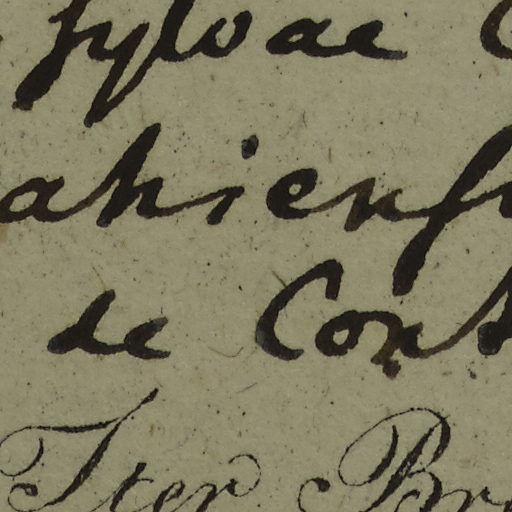 sylvae
ahiens
de Cont
Iter Br